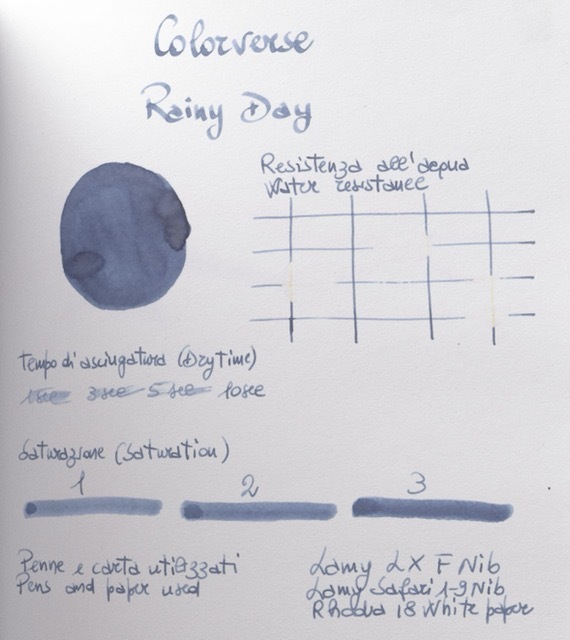 Colorverse
Rainy Day
Resistenza all'acqua
Water resistance
Tempo di asciugatura (Dry Time)
1sec 3sec 5sec 10sec
Saturazione (Saturation)
1 2 3
Penne e carta utilizzati
Pens and paper used
Lamy LX F Nib
Lamy Safari 1.9 Nib
Rhodia 18 White paper